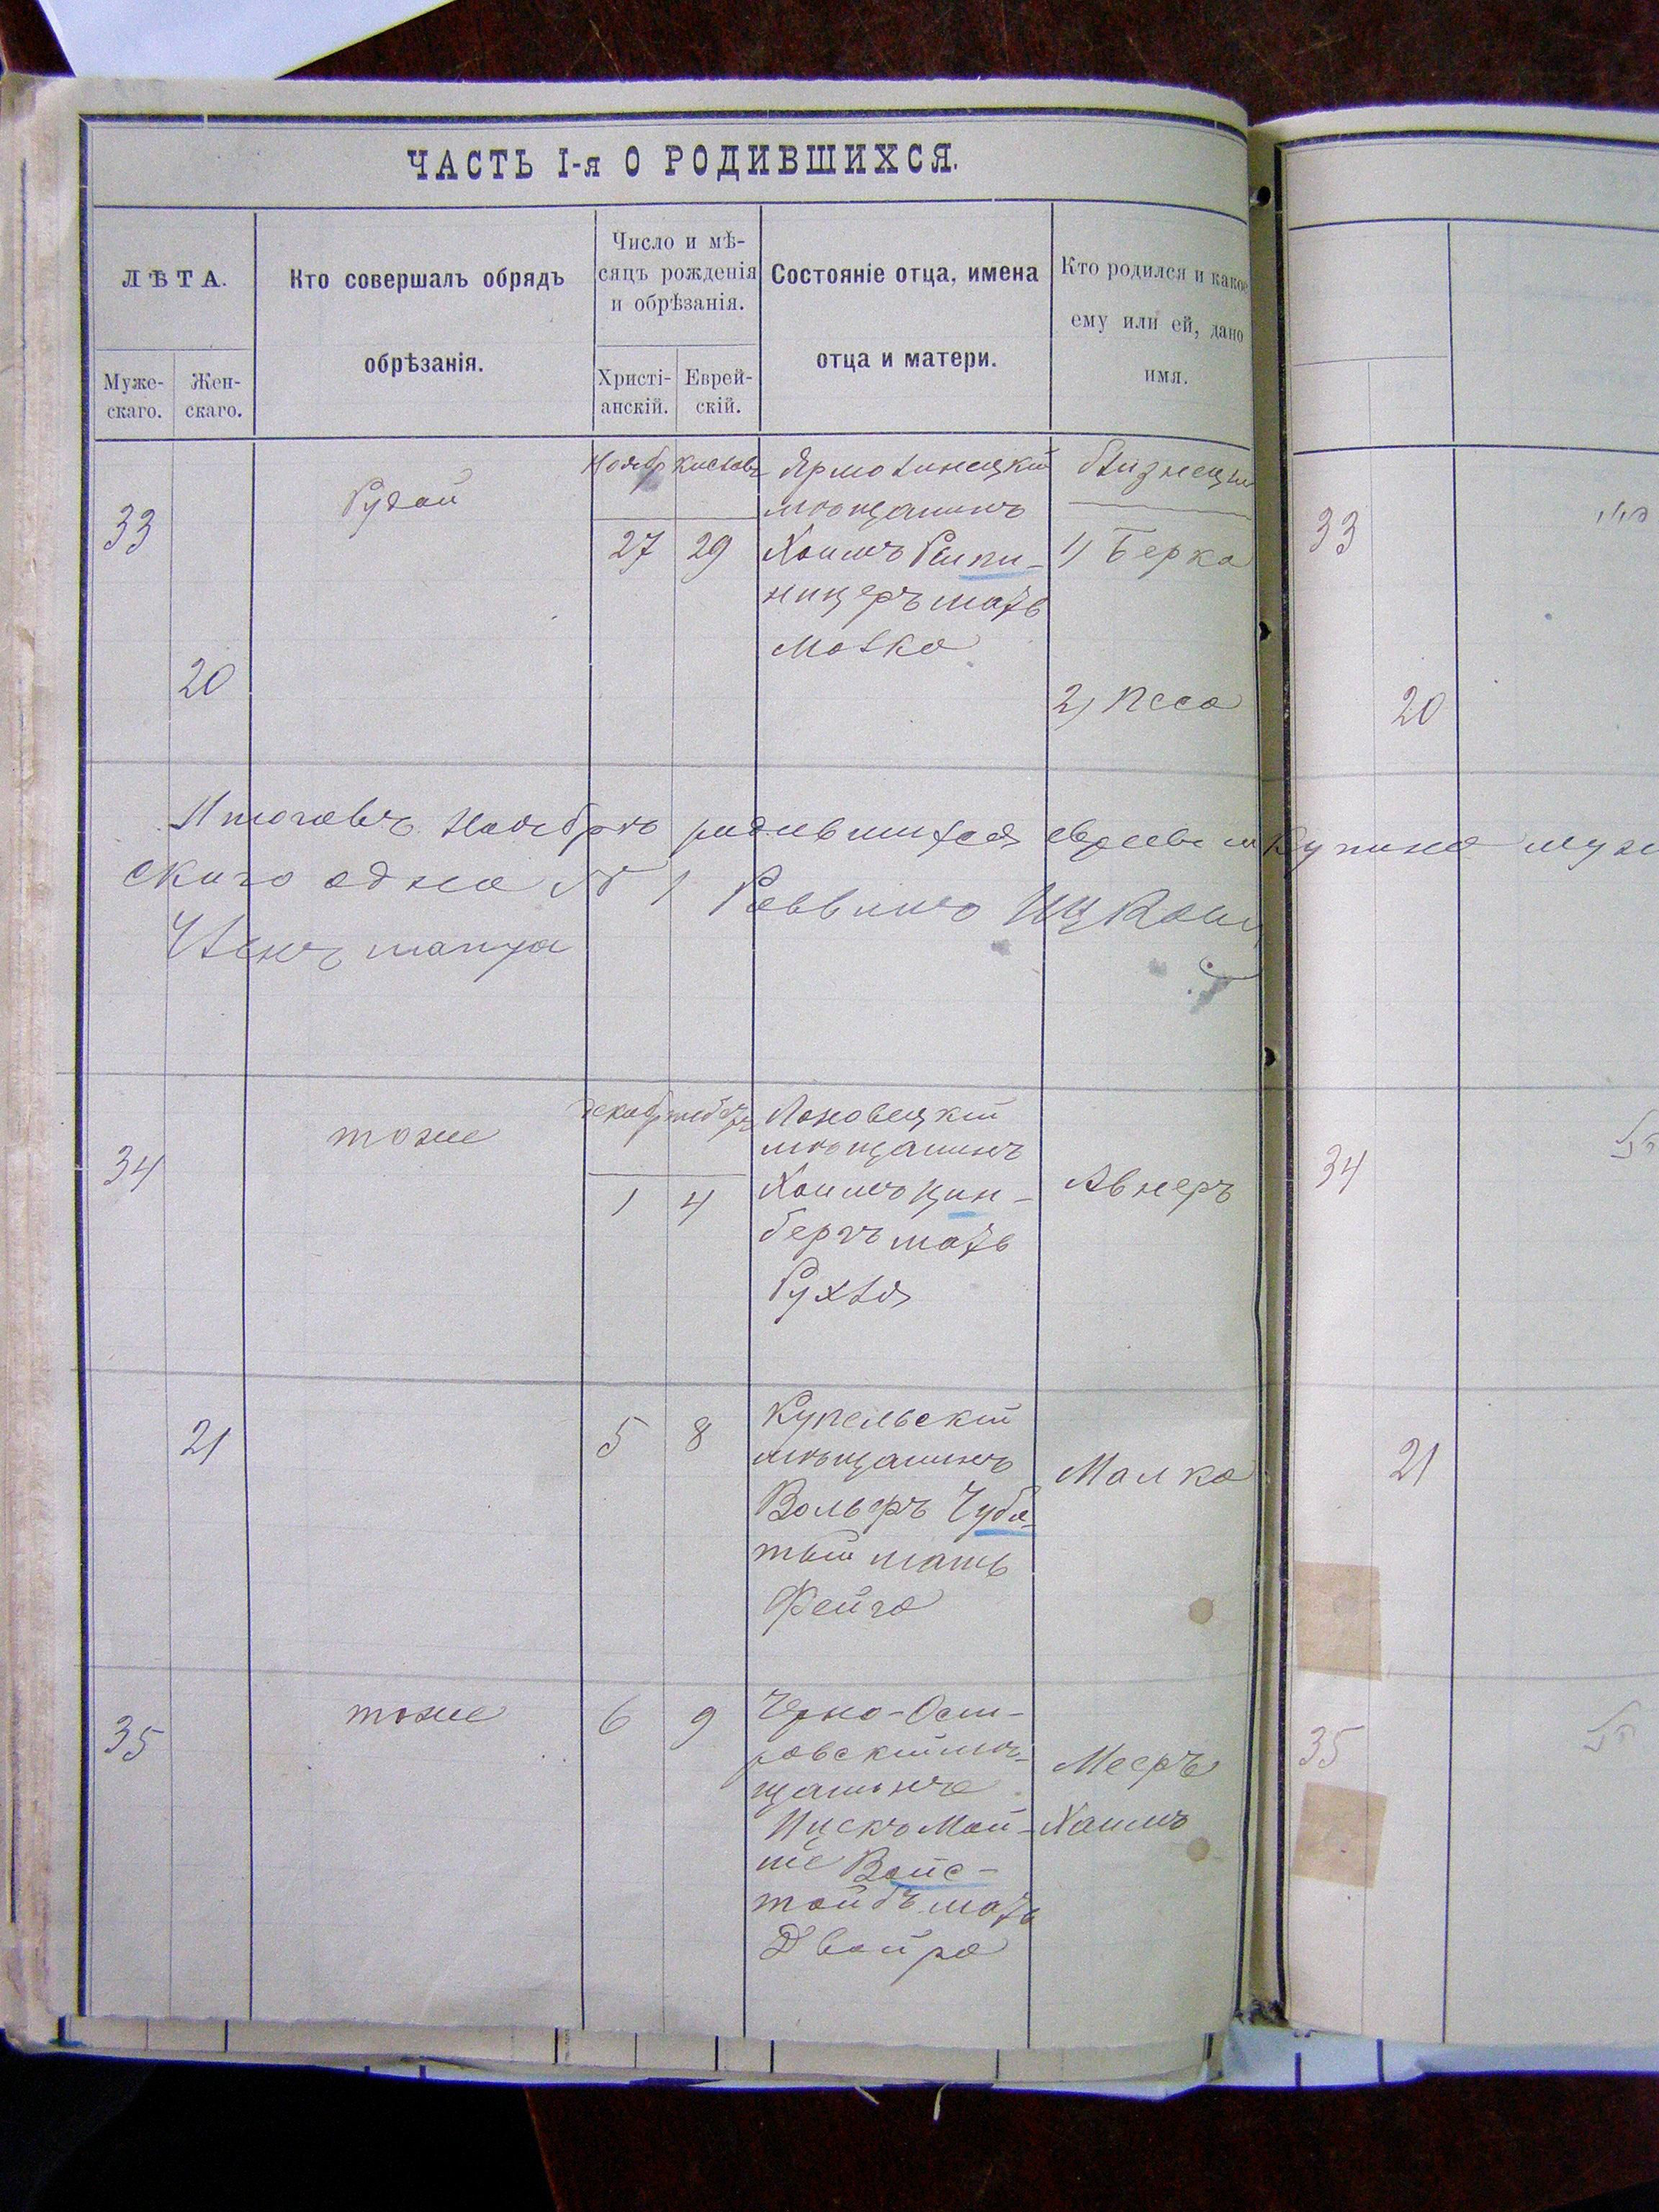 ЧАСТЬ I-я О РОДИВШИХСЯ.
ЛѢТА.
Муже-
скаго.
Жен-
скаго.
Кто совершалъ обрядъ
обрѣзанія.
Число и мѣ-
сяцъ рожденія
и обрѣзанія.
Христі-
анскій.
Еврей-
скій.
Состояніе отца, имена
отца и матери.
Кто родился и какое
ему или ей, дано
имя.
33
20
Рудой
Ноябр
27
Кислевъ
29
Ярмолинецкій
мѣщанинъ
Хаимъ Репи-
ницеръ мать
Малка
близнецы
1) Берко
2) Песа
Итоговъ Ноябрѣ родившихся евреевъ м Купина муж
скаго одна № 1 Раввинъ Ицко
Членъ
34
тоже
декабр
1
тебетъ
4
Яновецкій
мѣщанинъ
Хаимъ Цин-
бергъ мать
Рухля
Авнеръ
21
5
8
Купельскій
мѣщанинъ
Вольфъ Чуба-
тый мать
Фейга
Малка
35
тоже
6
9
Черно-Ост-
ровскій мѣ-
щанинъ
Ицекъ Мой-
ше Вайс-
тойбъ мать
Двойра
Мееръ
Хаимъ
33
20
34
21
35